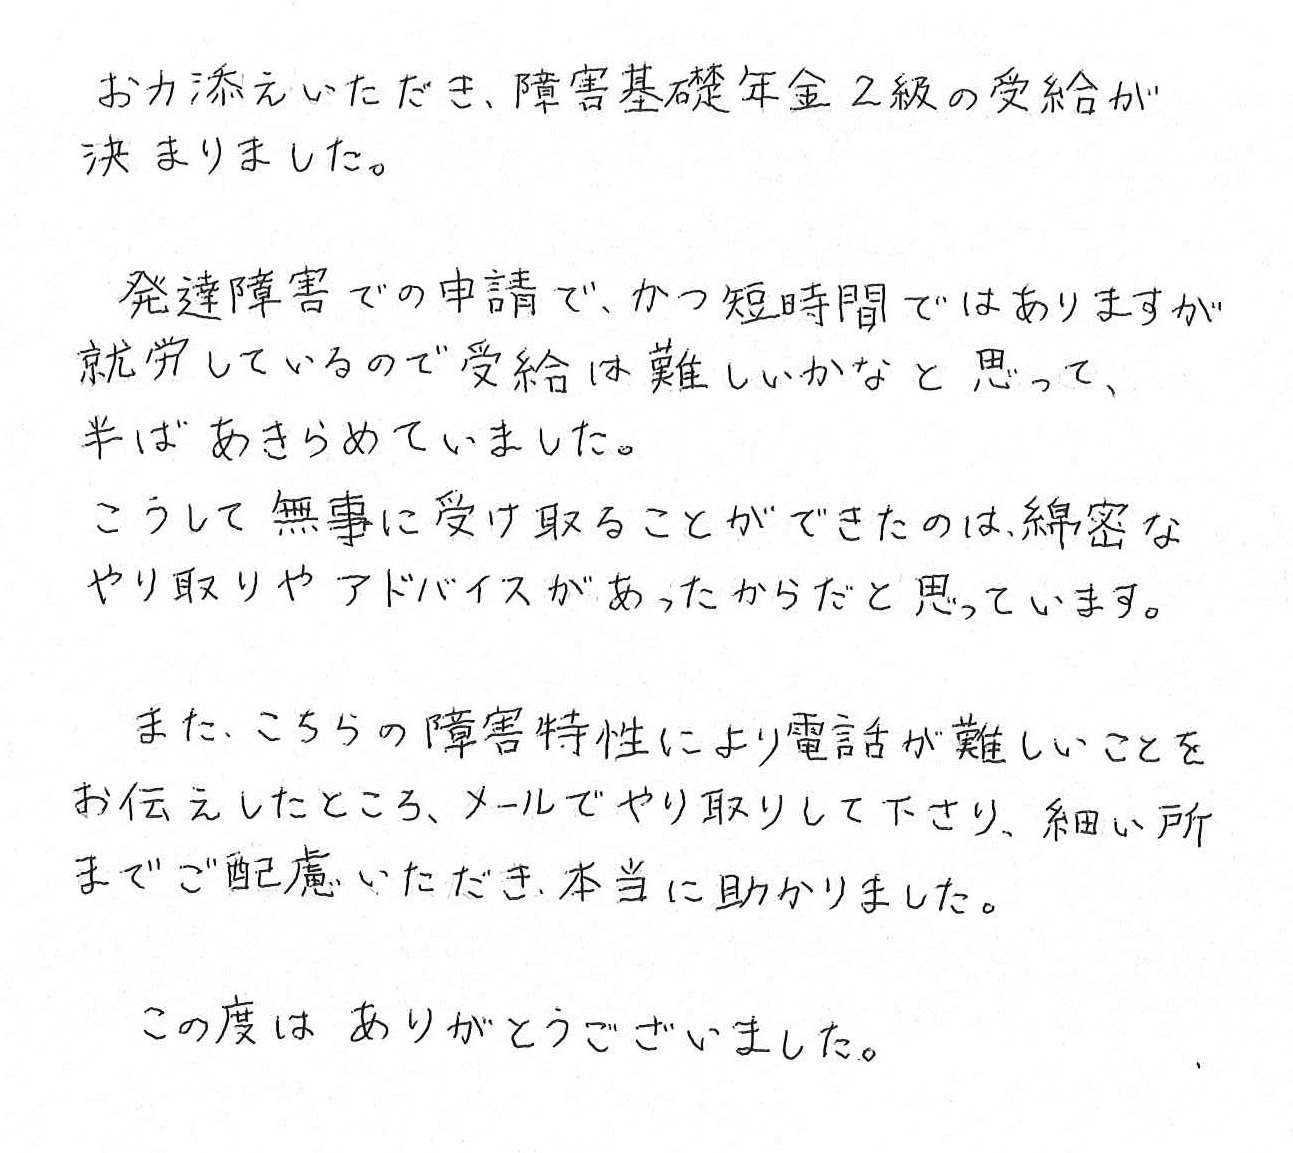 お力添えいただき、障害基礎年金2級の受給が
決まりました。
発達障害での申請で、かつ短時間ではありますが
就労しているので受給は難しいかなと思って、
半ばあきらめていました。
こうして無事に受け取ることができたのは、綿密な
やり取りやアドバイスがあったからだと思っています。
また、こちらの障害特性により電話が難しいことを
お伝えしたところ、メールでやり取りして下さり、細い所
までご配慮いただき、本当に助かりました。
この度はありがとうございました。